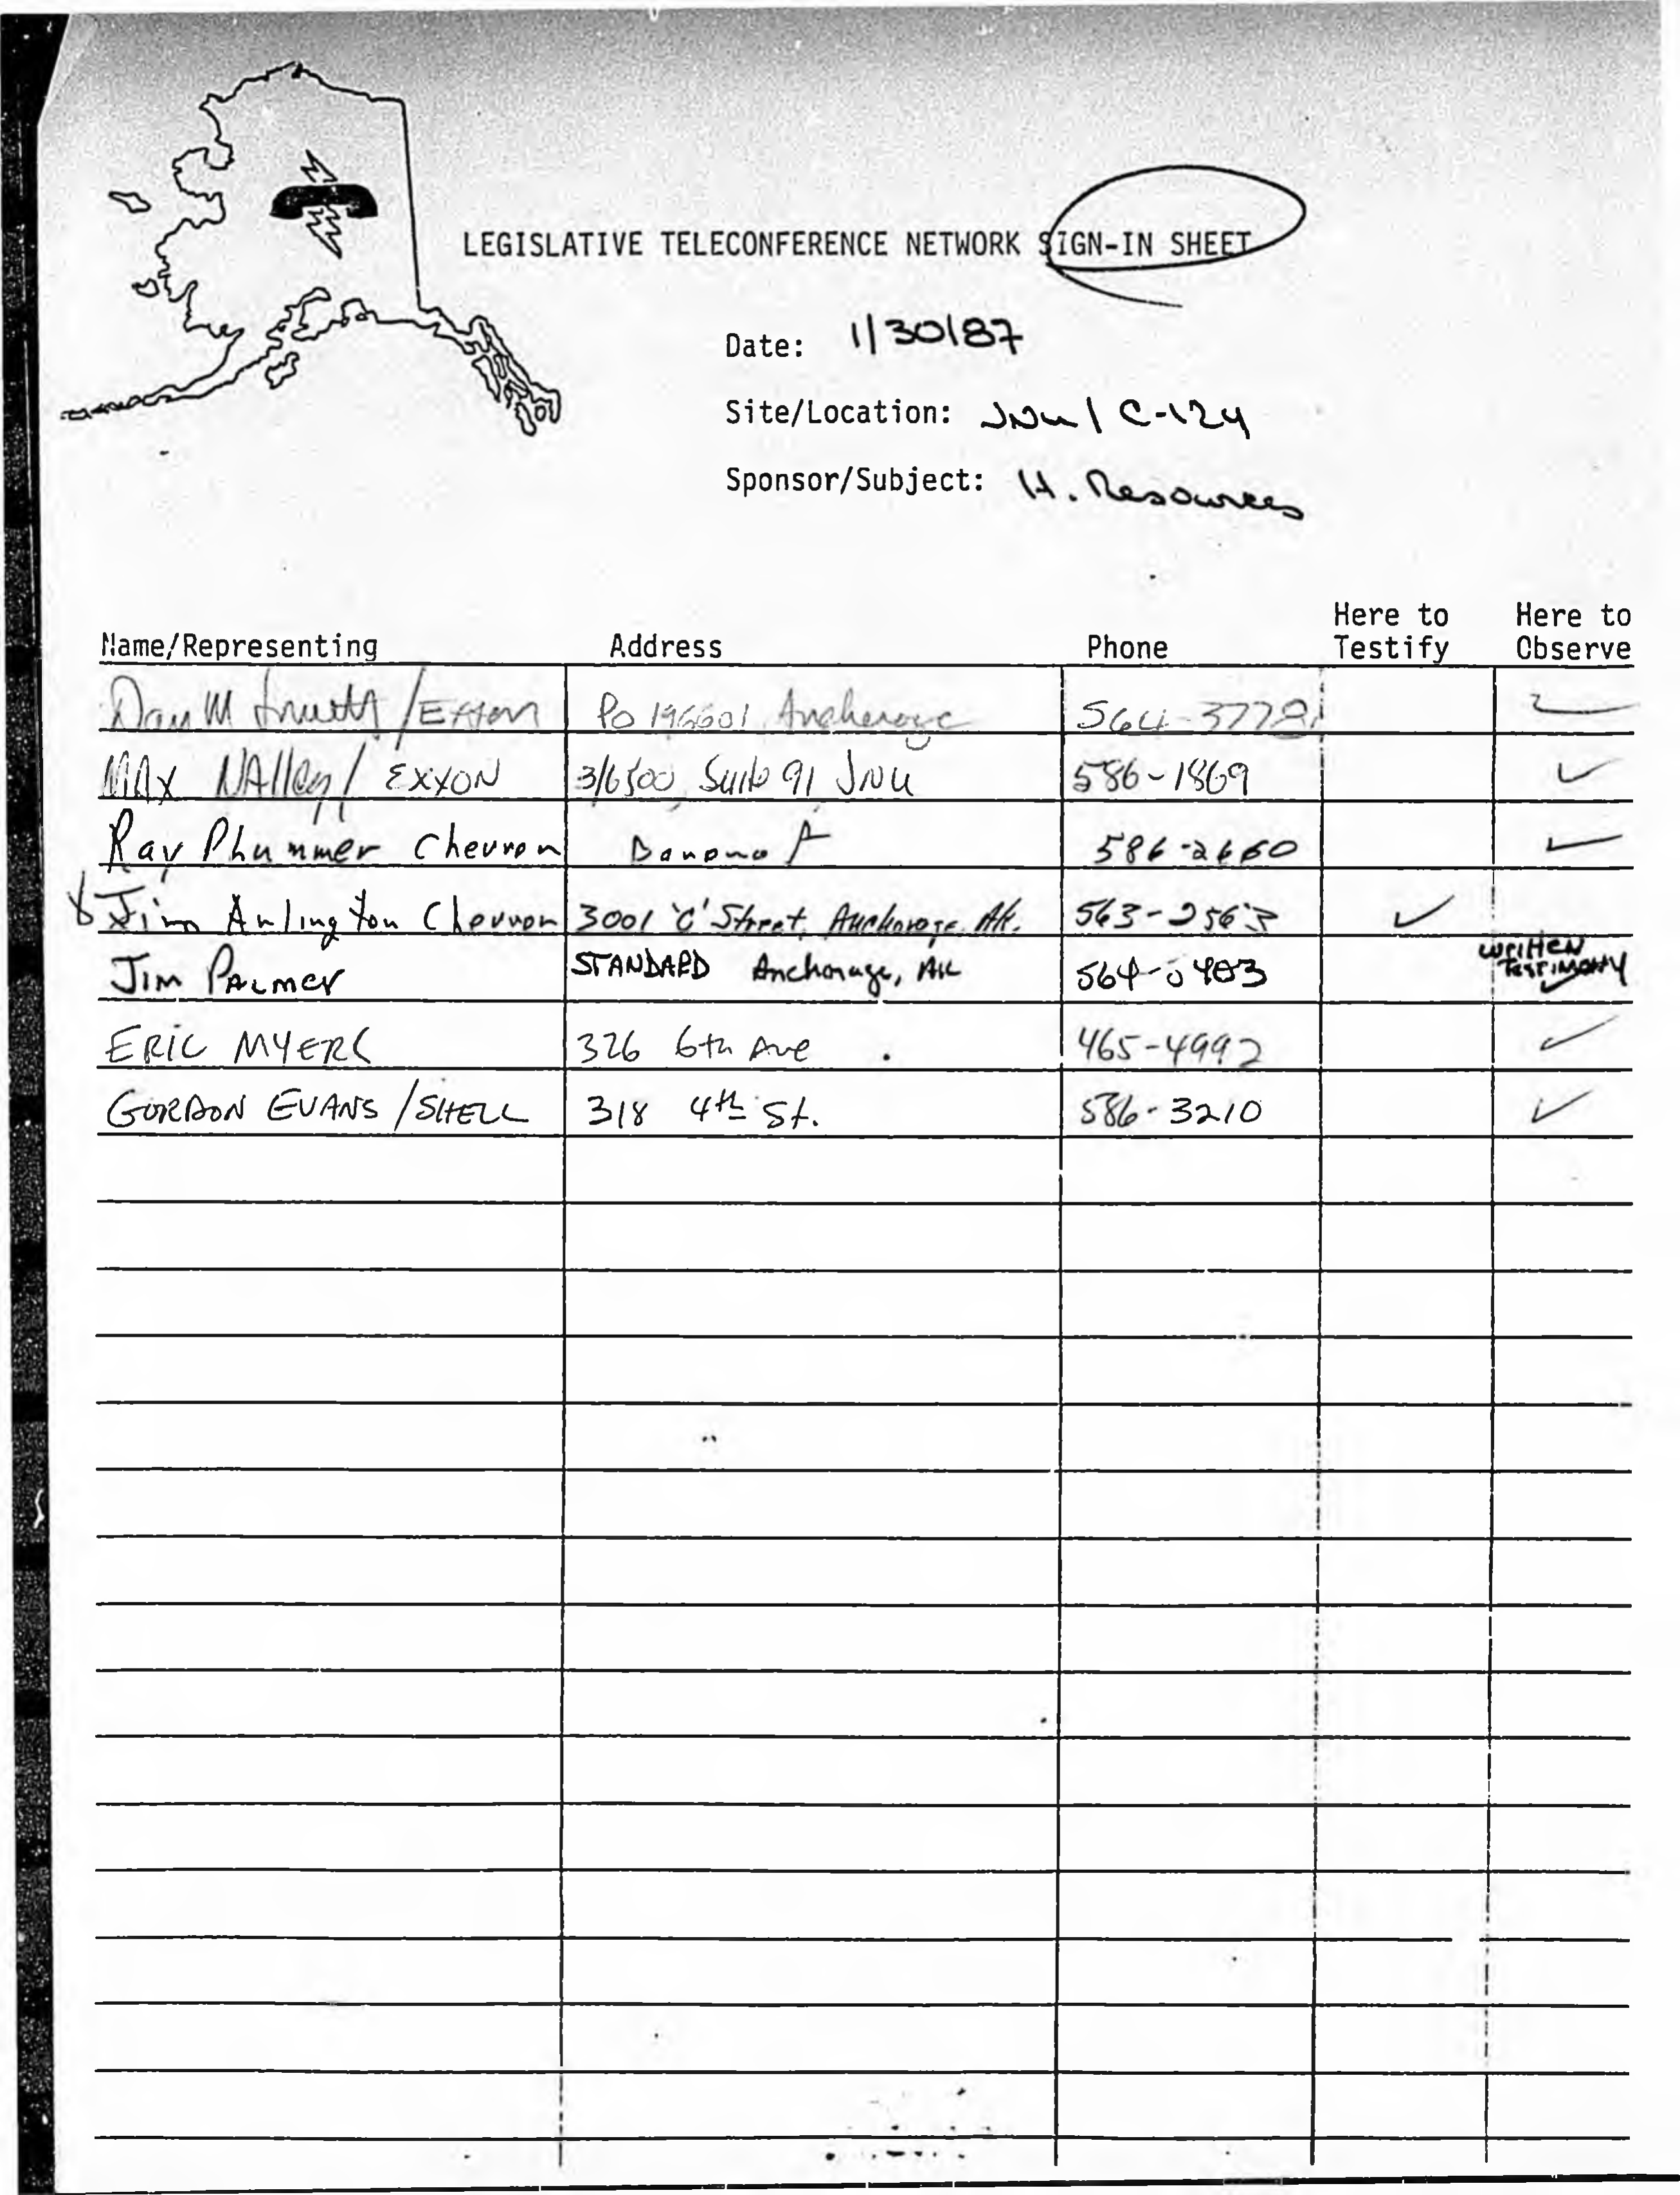 LEGISLATIVE TELECONFERENCE NETWORK SIGN-IN SHEET
Date: 1/30/87
Site/Location: JNu / C-124
Sponsor/Subject: H. Resources
Name/Representing Address Phone Here to Testify Here to Observe
Dan M / Exxon Po 196601 Anchorage 564-3778
MAX NAlley / EXXON Suite 91 JNU 586-1869
Ray Plummer Chevron 586-2660
Jim Arlington Chevron 3001 'C' Street, Anchorage Ak. 563-2563
Jim PALMER STANDARD Anchorage, AK 564-0483 WRITTEN TESTIMONY
ERIC MYERS 326 6th Ave 465-4992
GORDON EVANS / SHELL 318 4th St. 586-3210